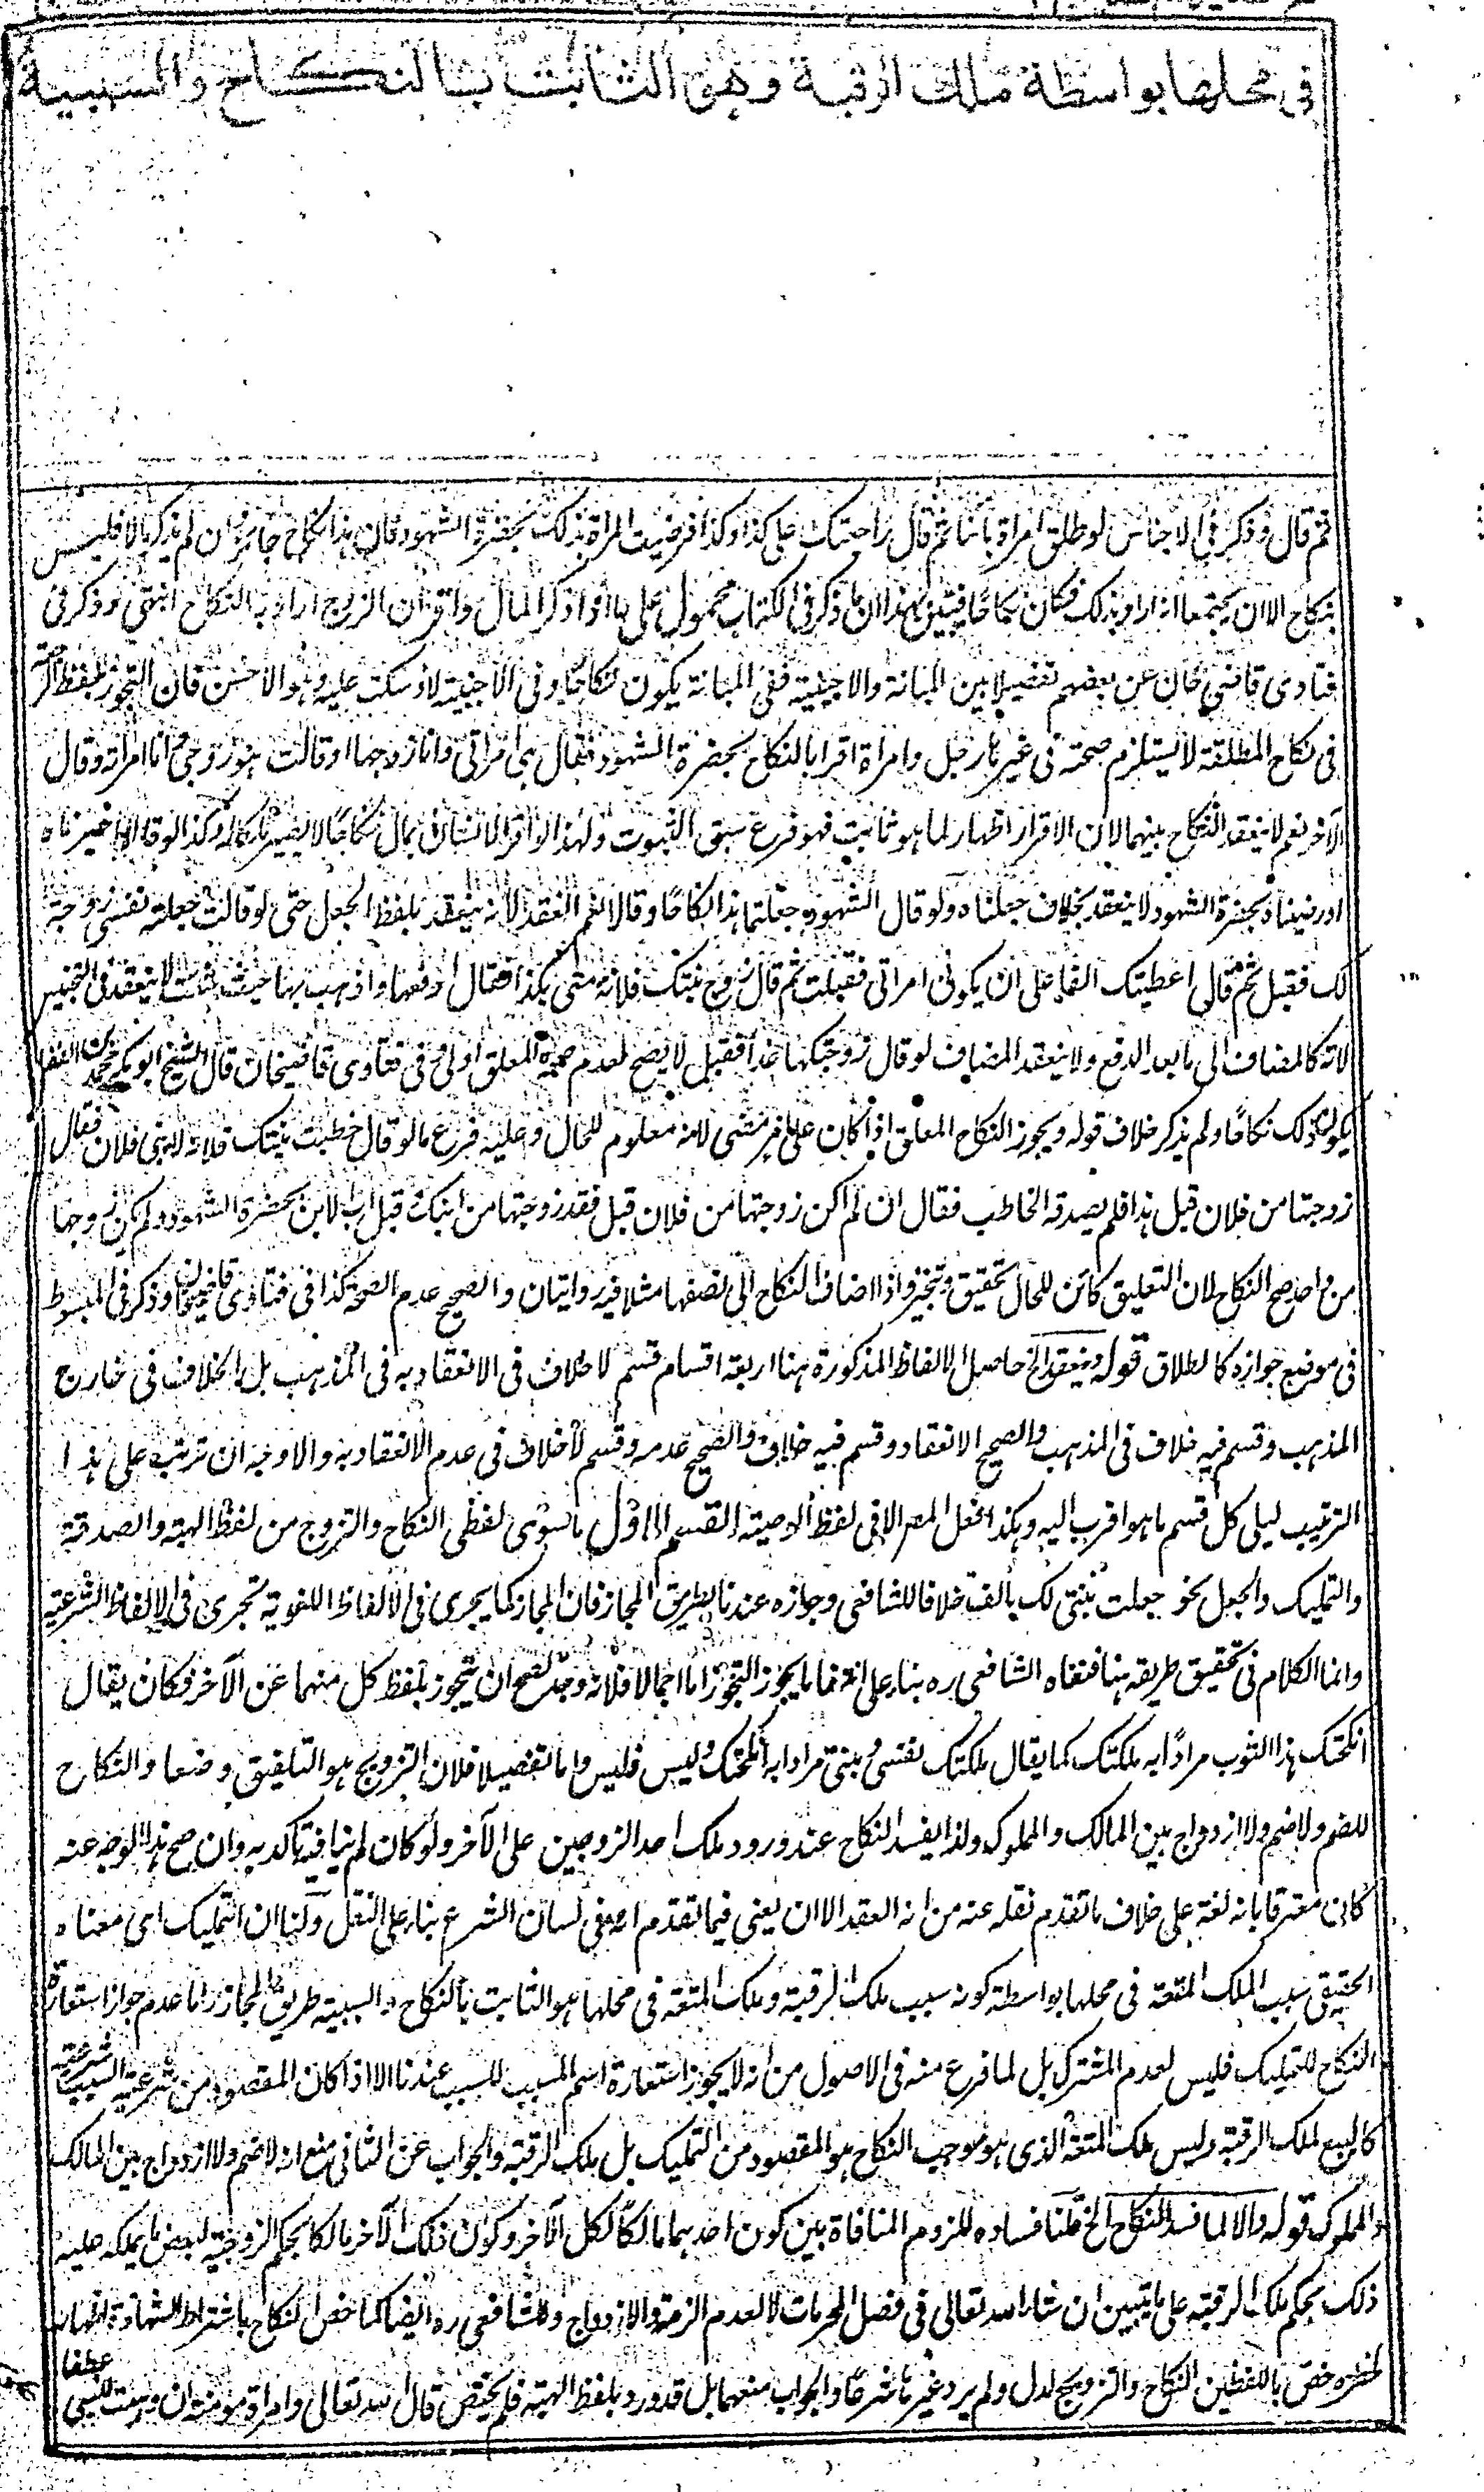 فى محلها بواسطة ملك الرقبة وهى الثابت بالنكاح والسببية
ثم قال وذكر فى الاجناس لو طلق امرأة بائنا ثم قال راجعتك على كذا وكذا فرضيت المرأة بذلك بحضرة الشهود قال هذا نكاح جائز وان لم يذكر مالا فليس
بنكاح الا ان يجتمعا انه اراد بذلك فكان نكاحا فتبين بهذا ان ما ذكر فى الكتاب محمول على ما اذا ذكر المال واقر ان الزوج اراد به النكاح انتهى وذكر فى
فتاوى قاضى خان عن بعضهم تفصيلا بين المبانة والاجنبية ففى المبانة يكون نكاحا وفى الاجنبية لا وسكت عليه وهو الاحسن فان التجوز بلفظ الرجعة
فى نكاح المطلقة لا يستلزم صحته فى غيرها رجل وامرأة اقرا بالنكاح بحضرة الشهود فقال هى امرأتى وانا زوجها او قالت هو زوجى وانا امرأته وقال
الآخر نعم لا ينعقد النكاح بينهما لان الاقرار اظهار لما هو ثابت فهو فرع سبق الثبوت ولهذا لو اقر انسان بمال نكاحا لا يصير ملكا له وكذا لو قالا اجزناه
او رضيناه بحضرة الشهود لا ينعقد بخلاف جعلناه ولو قال الشهود جعلتما هذا نكاحا وقالا نعم انعقد لانه ينعقد بلفظ الجعل حتى لو قالت جعلت نفسى زوجة
لك فقبل تم قال اعطيتك الفا على ان يكونى امرأتى فقبلت ثم قال زوج بنتك فلانة منى بكذا فقال ادفعها واذهب بها حيث شئت لا ينعقد فى التجنيس
لانه كالمضاف الى ما بعد الدفع ولا ينعقد المضاف لو قال زوجتكها غدا فقبل لا يصح لعدم صحة المعلق اولى فى فتاوى قاضيخان قال الشيخ ابو بكر محمد بن الفضل
يكون ذلك نكاحا ولم يذكر خلاف قوله ويجوز النكاح المعلق اذا كان على امر مضى لانه معلوم للحال وعليه فرع ما لو قال خطبت بنتك فلانة لابنى فلان فقال
زوجتها من فلان قبل هذا فلم يصدقه الخاطب فقال ان لم اكن زوجتها من فلان قبل فقد زوجتها من ابنك فقبل اب الابن بحضرة الشهود ولم يكن زوجها
من واحد صح النكاح لان التعليق كائن للحال تحقيق وتنجيز واذا اضاف النكاح الى نصفها مثلا فيه روايتان والصحيح عدم الصحة كذا فى فتاوى قاضيخان وذكر فى المبسوط
فى موضع جوازه كالطلاق قوله وينعقد الخ حاصل الالفاظ المذكورة هنا اربعة اقسام قسم لا خلاف فى الانعقاد به فى المذهب بل الخلاف فى خارج
المذهب وقسم فيه خلاف فى المذهب والصحيح الانعقاد وقسم فيه خلاف والصحيح عدمه وقسم لا خلاف فى عدم الانعقاد به والاوجه ان ترتب على هذا
الترتيب ليلى كل قسم ما هو اقرب اليه وهكذا فعل المصر الا فى لفظ الوصية القسم الاول ما سوى لفظى النكاح والتزويج من لفظ الهبة والصدقة
والتمليك والجعل نحو جعلت بنتى لك بالف خلافا للشافعى وجوازه عندنا بطريق المجاز فان المجاز كما يجرى فى الالفاظ اللغوية تجرى فى الالفاظ الشرعية
وانما الكلام فى تحقيق طريقه هنا فنفاه الشافعى ره بناء على انتفاء ما يجوز التجوز اما اجمالا فلانه لو وجد لصح ان يتجوز بلفظ كل منهما عن الآخر فكان يقال
انكحتك هذا الثوب مرادا به ملكتك كما يقال ملكتك نفسى او بنتى مرادا به انكحتك وليس فليس واما تفصيلا فلان التزويج هو التلفيق وضعا والنكاح
للضم ولا ضم ولا ازدواج بين المالك والمملوك ولذا يفسد النكاح عند ورود ملك احد الزوجين على الآخر ولو كان لم ينافيه تأكد به وان صح هذا الوجه عنه
كان معترفا بانه لغة على خلاف ما تقدم نقله عنه من انه العقد الا ان يعنى فيما تقدم انه فى لسان الشرع بناء على النقل ولنا ان التمليك اى معناه
الحقيقى سبب الملك المتعة فى محلها بواسطة كونه سبب ملك الرقبة وملك المتعة فى محلها هو الثابت بالنكاح والسببية طريق المجاز واما عدم جواز استعارة
النكاح للتمليك فليس لعدم المشترك بل لما فرع منه فى الاصول من انه لا يجوز استعارة اسم المسبب للسبب عندنا الا اذا كان المقصود من شرعية السبب شرعيته
كالبيع لملك الرقبة وليس ملك المتعة الذى هو موجب النكاح هو المقصود من التمليك بل ملك الرقبة والجواب عن الثانى منع انه لا ضم ولا ازدواج بين المالك
والمملوك قوله والا لما فسد النكاح الخ قلنا فساده للزوم المنافاة بين كون احدهما مالكا لكل الآخر وكون ذلك الآخر مالكا بحكم الزوجية لبعض ما يملكه عليه
ذلك بحكم ملك الرقبة على ما يتبين ان شاء الله تعالى فى فصل المحرمات لا لعدم الضم والازدواج وللشافعى ره ايضا كما خص النكاح باشتراط الشهادة اظهارا
لخطره خص باللفظين النكاح والتزويج لدل ولم يرد غيرهما شرعا والجواب منعهما بل قد ورد بلفظ الهبة فلم يختص قال الله تعالى وامرأة مؤمنة ان وهبت للنبى
عطفا